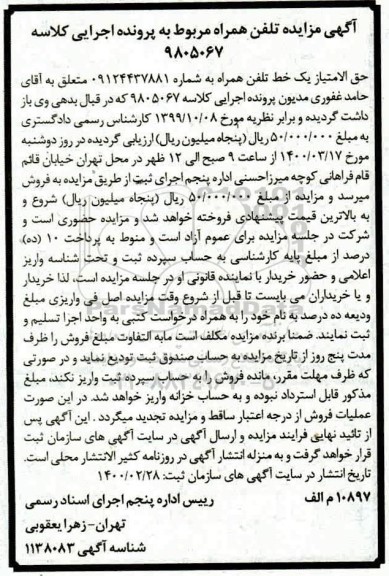 آگهی مزایده تلفن همراه مربوط به پرونده اجرایی کلاسه
۹۸۰۵۰۶۷
حق الامتیاز یک خط تلفن همراه به شماره ۰۹۱۲۴۴۳۷۸۸۱ متعلق به آقای
حامد غفوری مدیون پرونده اجرایی کلاسه ۹۸۰۵۰۶۷ که در قبال بدهی وی باز
داشت گردیده و برابر نظریه مورخ ۱۳۹۹/۱۰/۰۸ کارشناس رسمی دادگستری
به مبلغ ۵۰/۰۰۰/۰۰۰ ریال (پنجاه میلیون ریال) ارزیابی گردیده در روز دوشنبه
مورخ ۱۴۰۰/۰۳/۱۷ از ساعت ۹ صبح الی ۱۲ ظهر در محل تهران خیابان قائم
قام فراهانی کوچه میرزاحسنی اداره پنجم اجرای ثبت از طریق مزایده به فروش
میرسد و مزایده از مبلغ ۵۰/۰۰۰/۰۰۰ ریال (پنجاه میلیون ریال) شروع و
به بالاترین قیمت پیشنهادی فروخته خواهد شد و مزایده حضوری است و
شرکت در جلسه مزایده برای عموم آزاد است و منوط به پرداخت ۱۰ (ده)
درصد از مبلغ پایه کارشناسی به حساب سپرده ثبت و تحت شناسه واریز
اعلامی و حضور خریدار یا نماینده قانونی او در جلسه مزایده است، لذا خریدار
و یا خریداران می بایست تا قبل از شروع وقت مزایده اصل فی واریزی مبلغ
ودیعه ده درصد به نام خود را به همراه درخواست کتبی به واحد اجرا تسلیم و
ثبت نمایند. ضمنا برنده مزایده مکلف است مابه التفاوت مبلغ فروش را ظرف
مدت پنج روز از تاریخ مزایده به حساب صندوق ثبت تودیع نماید و در صورتی
که ظرف مهلت مقرر، مانده فروش را به حساب سپرده ثبت واریز نکند، مبلغ
مذکور قابل استرداد نبوده و به حساب خزانه واریز خواهد شد. در این صورت
عملیات فروش از درجه اعتبار ساقط و مزایده تجدید میگردد . این آگهی پس
از تائید نهایی فرایند مزایده و ارسال آگهی در سایت آگهی های سازمان ثبت
قرار خواهد گرفت و به منزله انتشار آگهی در روزنامه کثیر الانتشار محلی است.
تاریخ انتشار در سایت آگهی های سازمان ثبت: ۱۴۰۰/۰۲/۲۸
۱۰۸۹۷ م الف رییس اداره پنجم اجرای اسناد رسمی
تهران-زهرا یعقوبی
شناسه آگهی ۱۱۳۸۰۸۳